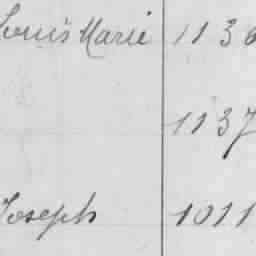 Louis Marie 1136
1137
Joseph 1011